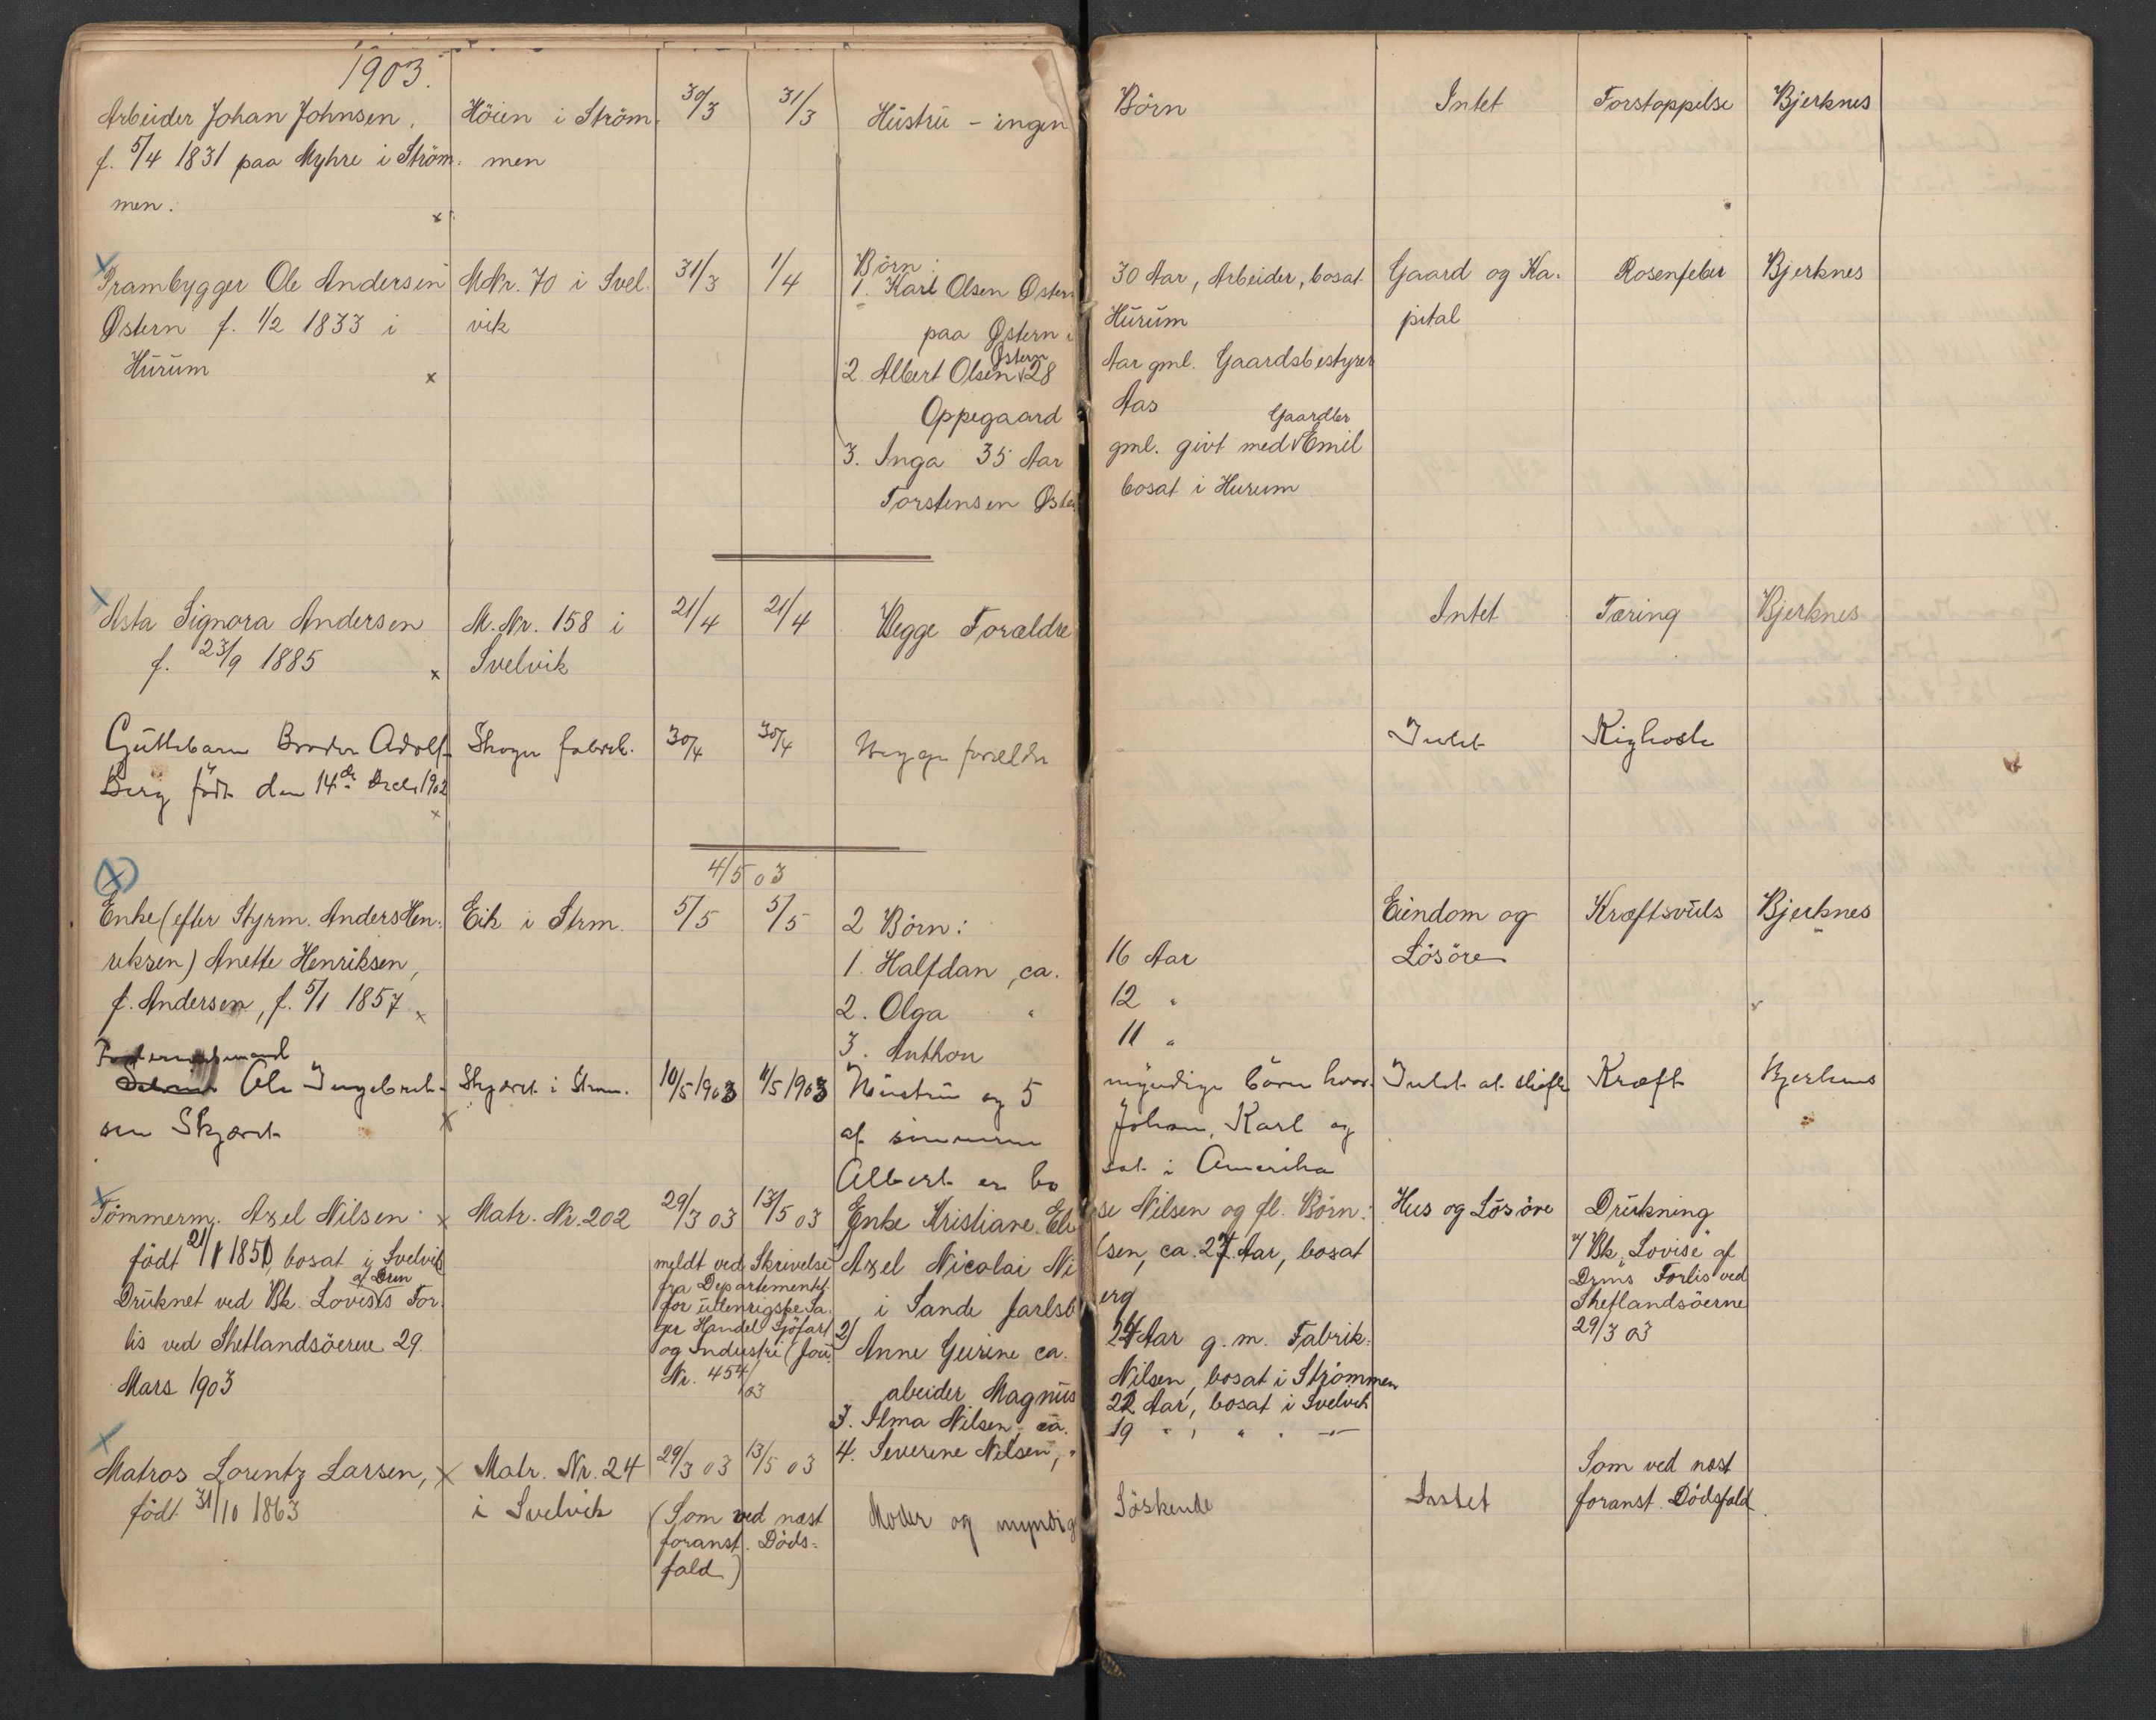 1903.
Arbeider Johan Johnsen, Höien i Ström- 30/3 31/3 Hustru - ingen Börn Intet Forstoppelse Bjerknes
f. 5/4 1831 paa Myhre i Ström- men
men. x
x Prambygger Ole Andersen MNr. 70 i Svel- 31/3 1/4 Börn: 
Østern f. 1/2 1833 i vik 1. Karl Olsen Østern 30 Aar, Arbeider, bosat Gaard og Ka- Rosenfeber Bjerknes
Hurum x paa Østern i Hurum pital
2 Albert Olsen Østern 28 Aar gml. Gaardsbestyrer
Oppegaard Aas
3. Inga 35 Aar gml. givt med Gaardbr Emil
Torstensen Øste bosat i Hurum
x Asta Signora Andersen M.Nr. 158 i 21/4 21/4 Begge Forældre Intet Tæring Bjerknes
f. 23/9 1885 x Svelvik
Guttebarn Broder Adolf Skoger fabrik. 30/4 30/4 Begge forældre Intet Kighoste
Berg född den 14de Decbr 1902 x
4/5 03
x Enke (efter Styrm. Anders Hen- Eik i Strm. 5/5 5/5 2 Börn: Eiendom og Kræftsvuls Bjerknes
riksen) Anette Henriksen, 1. Halfdan, ca. 16 Aar Lösöre
f. Andersen, f. 5/1 1857 x 2. Olga " 12 "
3. Anthon 11 "
Ole Ingebret- Skjæret i Strm. 10/5 1903 11/5 1903 Hustru og 5 myndige börn hvor- Intet at skifte Kræft Bjerknes
sen Skjæret x af sönnerne Johan, Karl og
Albert er bosat i Amerika
x Tömmerm. Axel Nilsen x Matr. Nr. 202 29/3 03 13/5 03 Enke Kristiane Elise Nilsen og fl. Börn: Hus og Lösöre Drukning
född 21/1 1850, bosat i Svelvik meldt ved Skrivelse Axel Nicolai Nilsen, ca. 27 Aar, bosat v/ Bk. "Lovise" af
Druknet ved Bk. Lovises af Drm For- fra Departementet i Sande Jarlsberg Drms Forlis ved
lis ved Shetlandsöerne 29. for utenrigske Sa- 2) Anne Gurine ca. 24 Aar g.m. Fabrik- Shetlandsöerne
Mars 1903 ger Handel Sjöfart arbeider Magnus Nilsen, bosat i Strömmen 29/3 03
og Industri (Jou. 3. Alma Nilsen, ca. 22 Aar, bosat i Svelvik
Nr. 454/03 4. Severine Nilsen, " 19 " , " " —"—
x Matros Lorentz Larsen, x Matr. Nr. 24 29/3 03 13/5 03 Som ved næst
född 31/10 1863 i Svelvik (Som ved næst Moder og myndig Söskende Intet foranst. Dödsfald.
foranst. Döds-
fald)